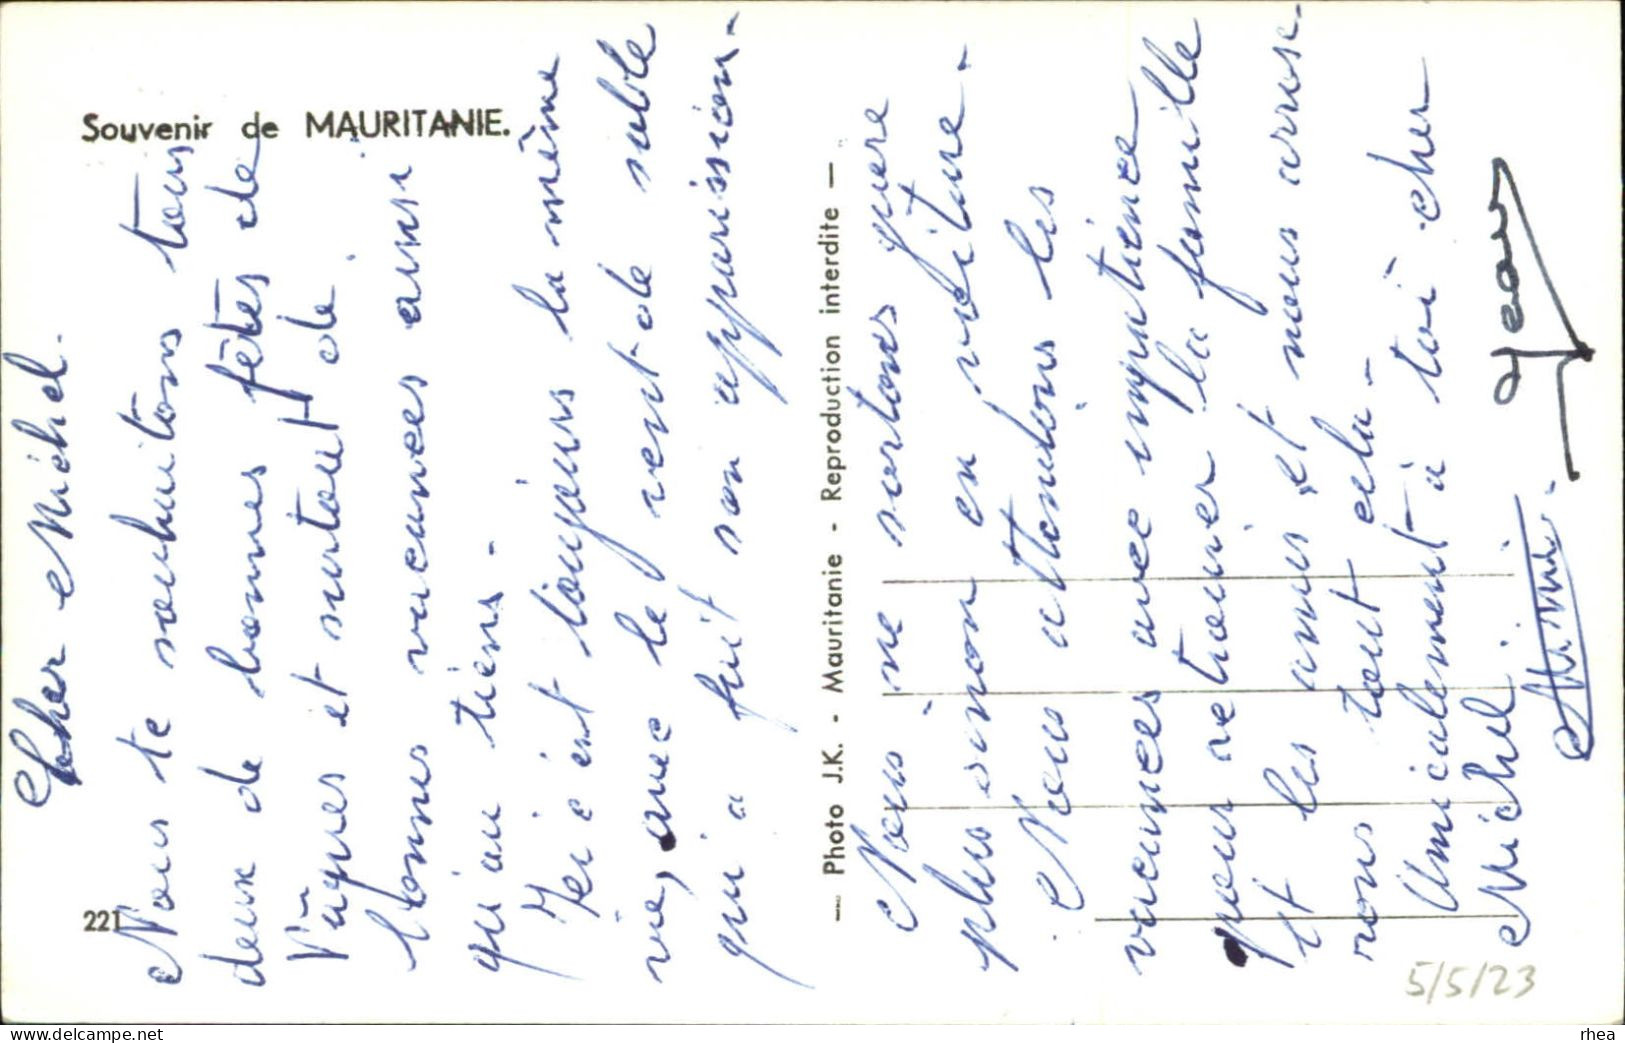 Souvenir de MAURITANIE.
221
— Photo J.K. - Mauritanie - Reproduction interdite —
Cher Michel.
Nous te souhaitons tous
deux de bonnes fêtes de
Pâques et surtout de
bonnes vacances ainsi
qu'au tiens -
Ici c'est toujours la même
vie, avec le vent de sable
qui a fait son apparission -
Nous ne sortons guere
plus sinon en voiture -
Nous attendons les
vacances avec impatience
pour retrouver la famille
et les amis, et nous arrose-
rons tout cela -
Amicalement à toi cher
Michel.
Jean
5/5/23
rhea